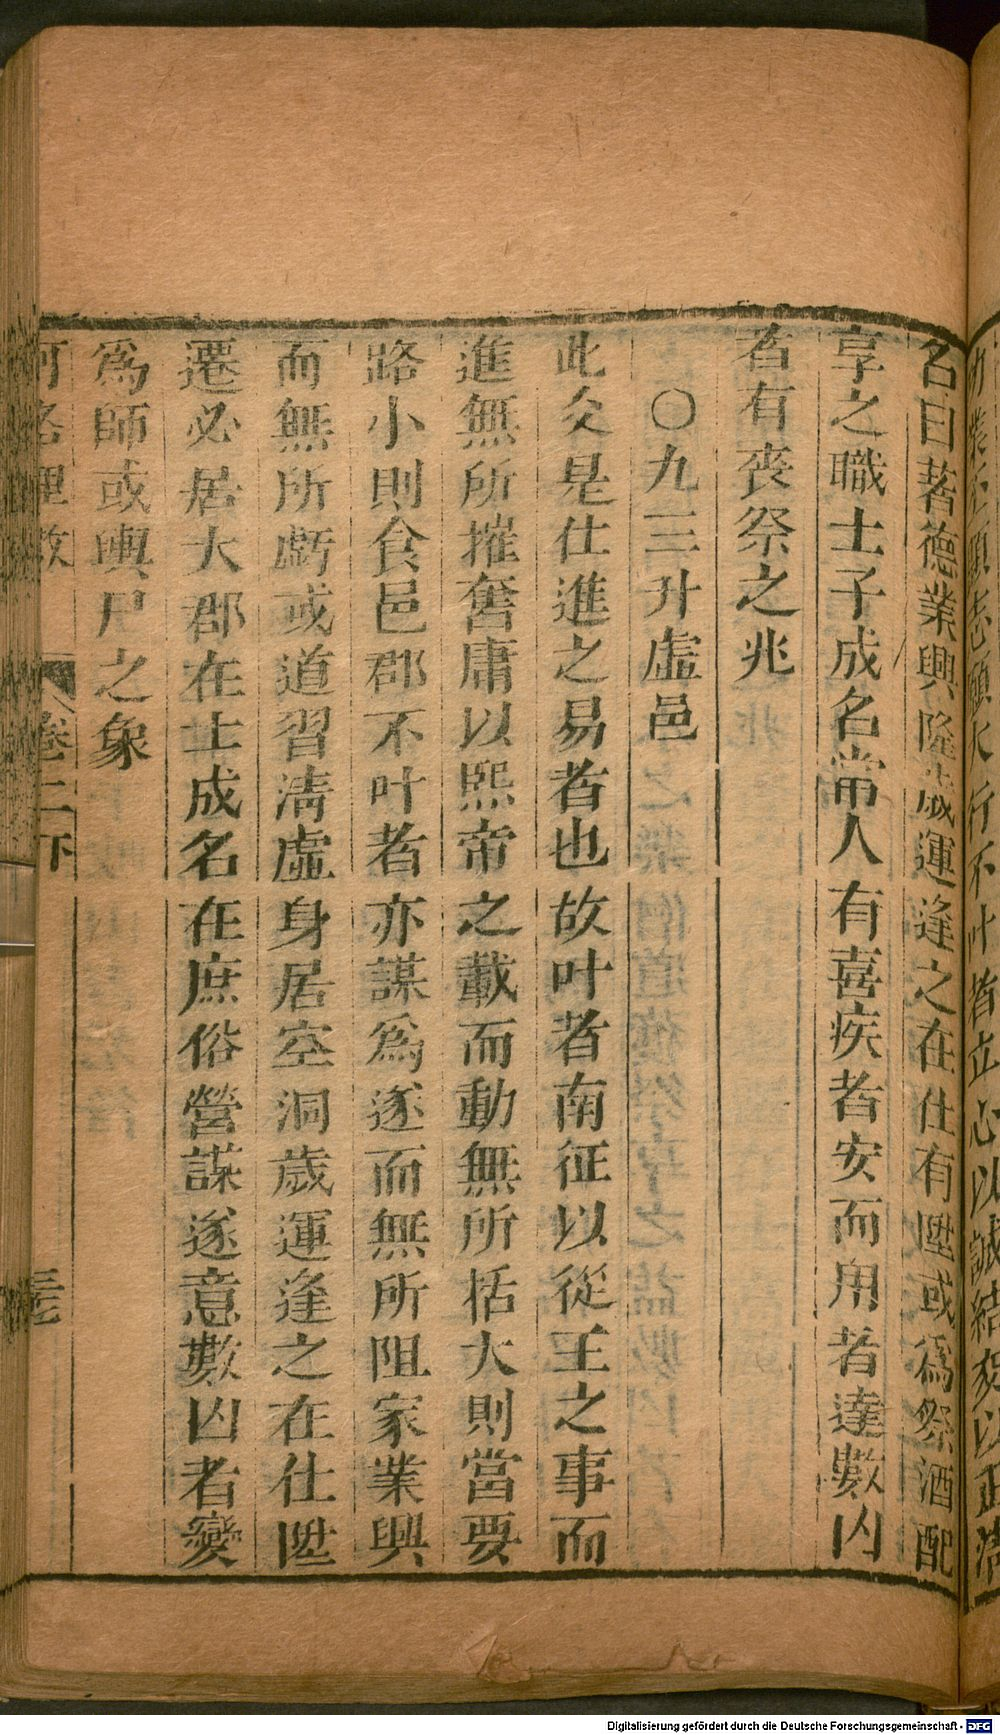 名曰著德業興隆歲運逢之在仕有陞或爲祭酒配
享之職士子成名常人有喜疾者安而用者達數凶
者有喪祭之兆
〇九三升虛邑
此爻是仕進之易者也故叶者南征以從王之事而
進無所摧奮庸以熙帝之載而動無所括大則當要
路小則食邑郡不叶者亦謀爲遂而無所阻家業興
而無所虧或道習清虛身居空洞歲運逢之在仕陞
遷必居大郡在士成名在庶俗營謀遂意數凶者變
爲師或輿尸之象
河洛理數 卷二下 三七
Digitalisierung gefördert durch die Deutsche Forschungsgemeinschaft - DFG